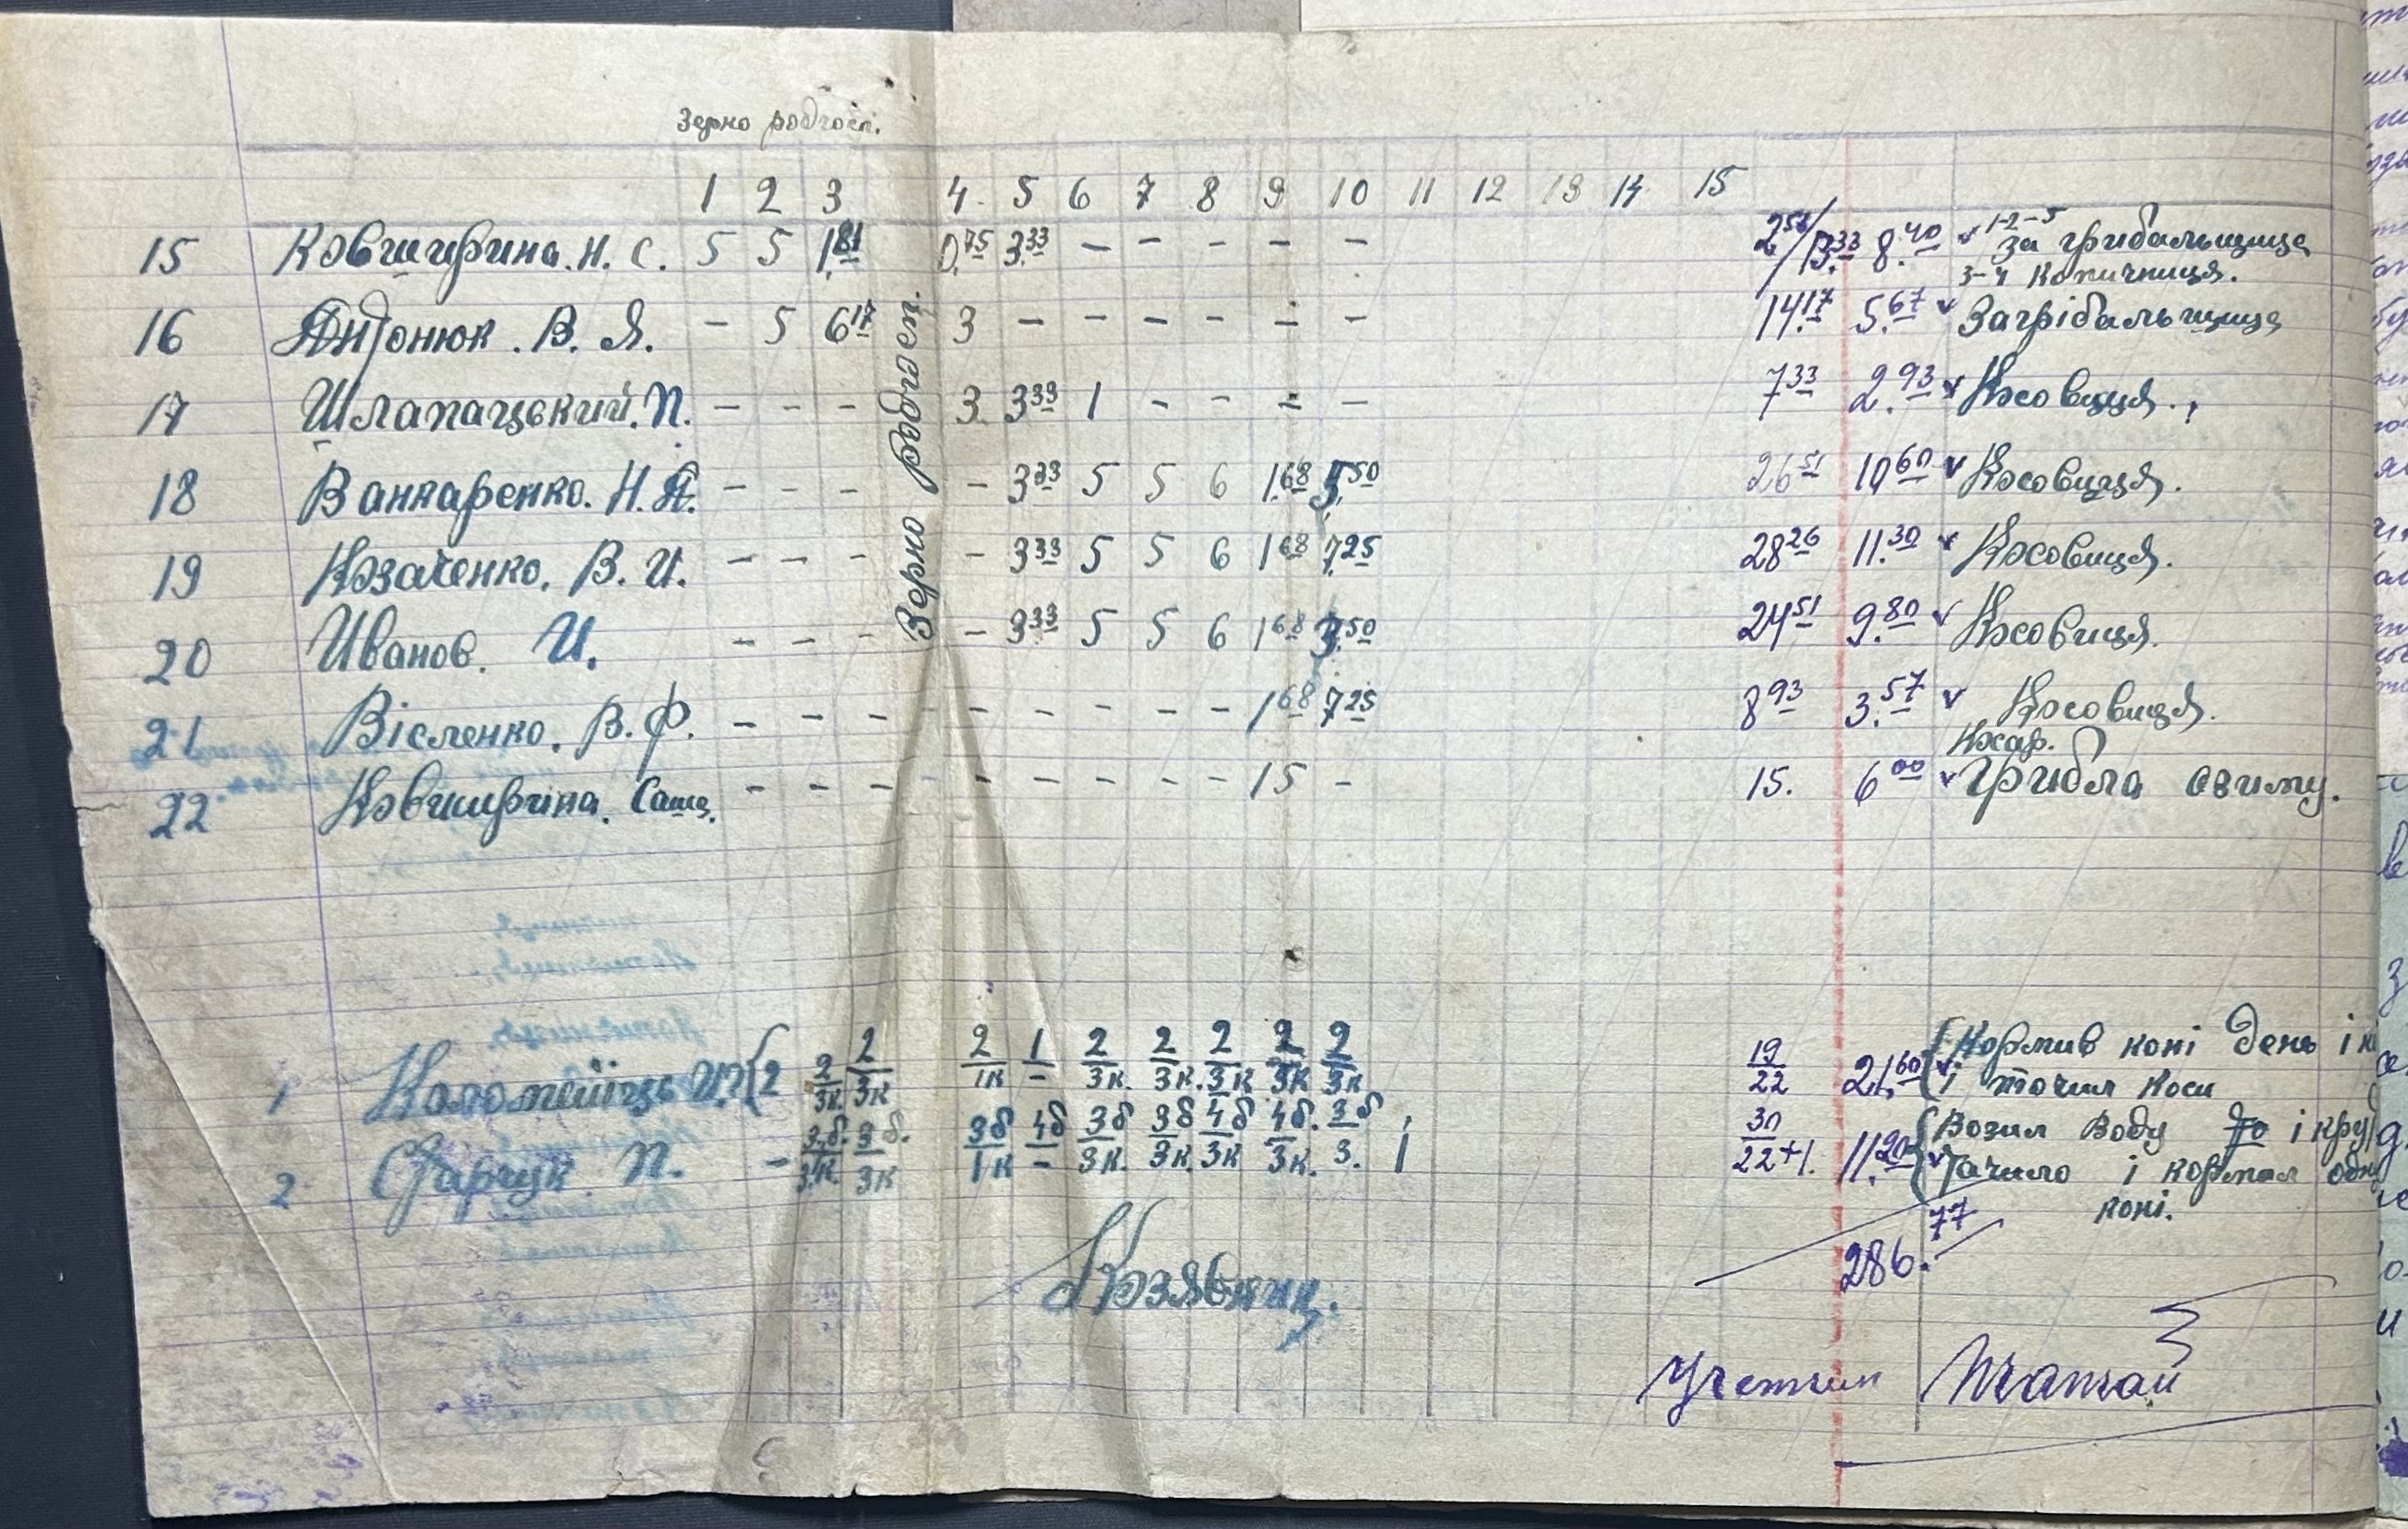 зерно радгосп.
1 2 3 4 5 6 7 8 9 10 11 12 13 14 15
Зерно радгосп.
15 Ковширина. Н. С. 5 5 1,81 0,75 3 33 – – – – – 2 56/13.33 8.40 v 1-2-5 за грибальщица
3-4 копичниця.
16 Антонюк. В. Я. – 5 6 17 3 – – – – – – 14.17 5.67 v Загрібальщица
17 Шлапацький. П. – – – 3 3 33 1 – – – – 7 33 2.93 v Косовиця.
18 Ванкаренко. Н. А. – – – – 3 33 5 5 6 1 68 5,50 26 51 10 60 v Косовиця.
19 Козаченко. В. И. – – – – 3 33 5 5 6 1 68 7,25 28 26 11.30 v Косовиця.
20 Иванов. И. – – – – 3 33 5 5 6 1 68 3.50 24 51 9.80 v Косовиця.
21 Вісленко. В. Ф. – – – – – – – – 1 68 7 25 8 93 3.57 v Косовиця.
22 Ковширина. Саша. – – – – – – – – 15 – 15. 6 00 v Грибла озиму.
1 Коломеїць 2 2/3к. 2/3к 2/1к 1/– 2/3к. 2/3к. 2/3к 2/3к 2/3к 19/22 21.60 v Кормив коні день і
і точил коси
2 Старчук П. – 3б./3к 3б./3к 3б/1к 4б/– 3б/3к. 3б/3к 4б/3к 4б./3к. 3б/3. 30/22+1. 11.20 v Возил воду і
точило і кормил
коні.
286.77
Учетчик